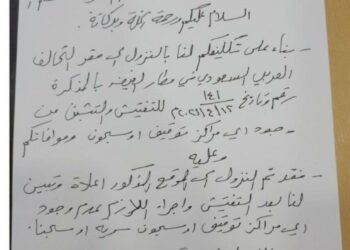 السلام عليكم ورحمة الله وبركاته:
- بناء على تكليفكم لنا بالنزول الى مقر التحالف
العربي السعودي في مطار الريان بالمذكرة
رقم وتاريخ ١٤١ ٢٠٢١/٤/١٢ للتفتيش والتحقق من
وجود اي مراكز توقيف او سجون وموافاتكم
وعليه
- فقد تم النزول الى الموقع المذكور اعلاة وتبين
لنا بعد التفتيش واجراء اللازم بعدم وجود
اي مراكز توقيف او سجون سرية او سجينا.